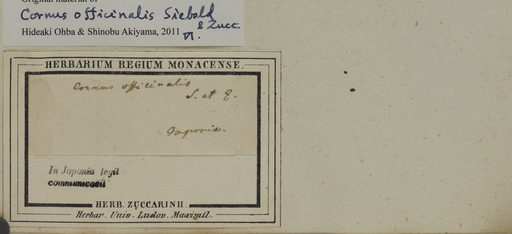 Original material of
Cornus officinalis Siebold
& Zucc.
Hideaki Ohba & Shinobu Akiyama, 2011
HERBARIUM REGIUM MONACENSE.
Cornus officinalis
S. et Z.
Japonia.
In Japonia legit
communicavit
HERB. ZUCCARINII.
Herbar. Univ. Ludov. Maximil.